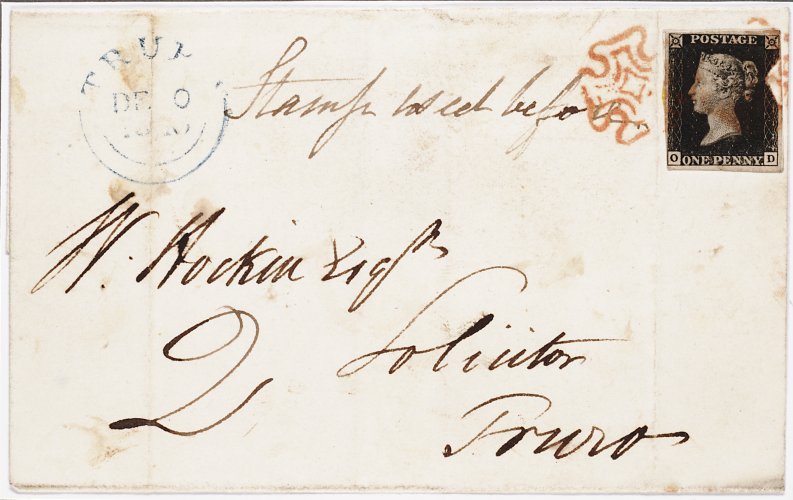 POSTAGE
O ONE PENNY. D
TRUR
DE 0
Stamp used before
W. Hockin Esqr
2
Solicitor
Truro